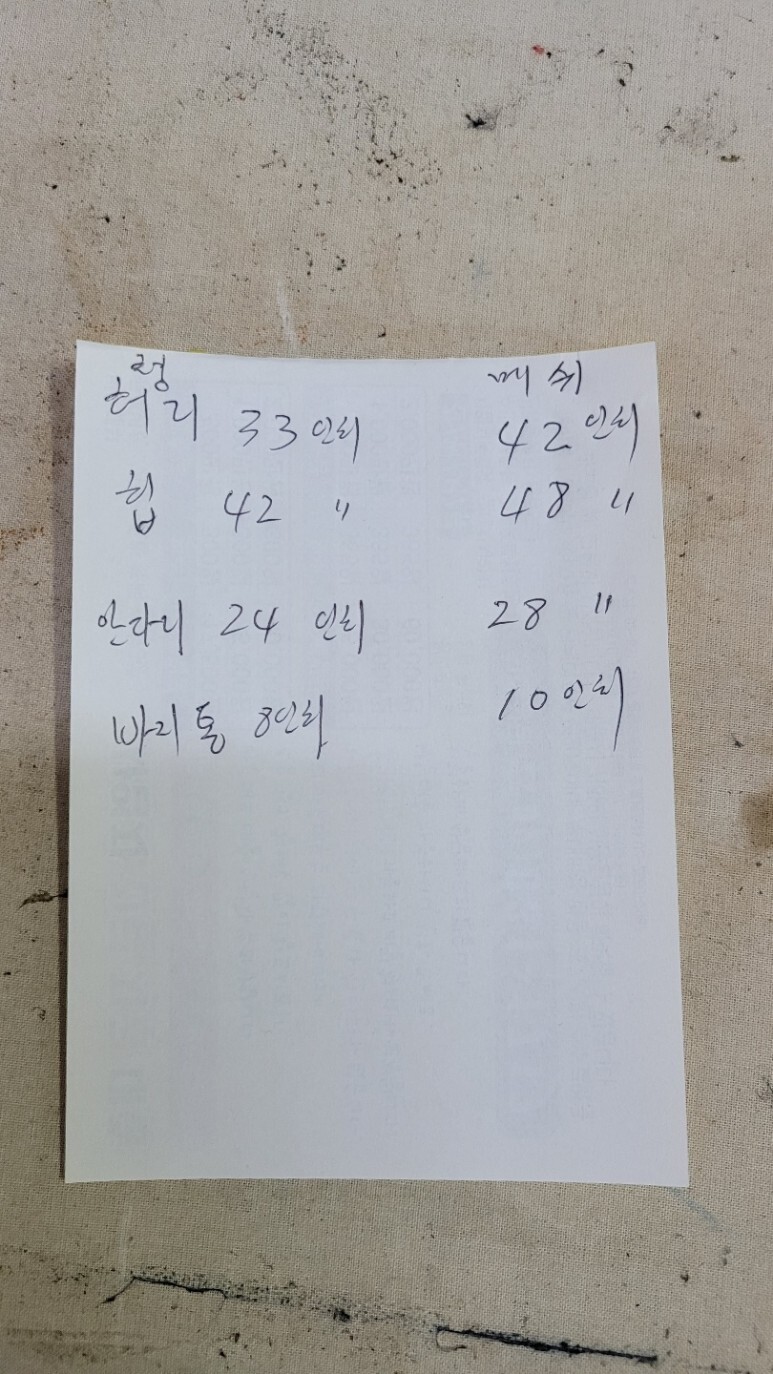 정 메쉬
허리 33인치 42인치
힙 42 〃 48 〃
안다리 24 인치 28 〃
바리통 8인치 10인치